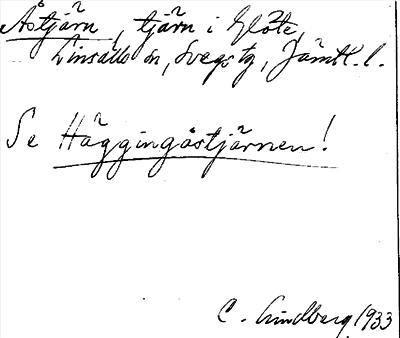 Åstjärn, tjärn i Glöte,
Linsälls sn, Svegs tg, Jämtl. l.
Se Häggingåstjärnen!
C. Lindberg 1933